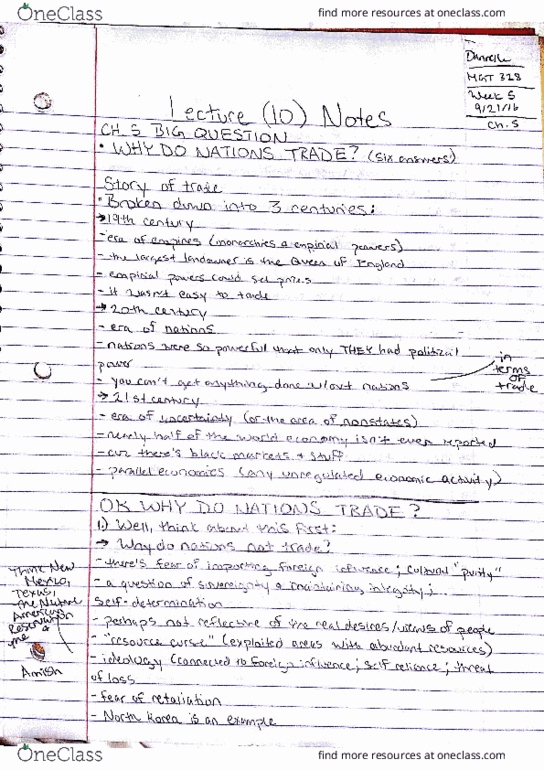 OneClass
find more resources at oneclass.com
Dannelle
MGT 328
Week 5
9/21/16
Ch. 5
Lecture (10) Notes
CH. 5 BIG QUESTION
• WHY DO NATIONS TRADE? (six answers)
Story of trade
• Broken down into 3 centuries:
→ 19th century
- era of empires (monarchies & empirial powers)
- the largest landowner is the Queen of England
- empirial powers could set prices
- it wasn't easy to trade
→ 20th century
- era of nations
- nations were so powerful that only THEY had political
power
- you can't get anything done w/out nations
in
terms
of
trade
→ 21st century
- era of uncertainty (or the area of nonstates)
- nearly half of the world economy isn't even reported
- cuz there's black markets + stuff
- parallel economics (any unregulated economic activity)
OK WHY DO NATIONS TRADE?
1.) Well, think about this first:
→ Why do nations not trade?
- there's fear of importing foreign influence; cultural "purity"
- a question of sovereignty & maintaining integrity;
self-determination
- perhaps not reflective of the real desires/views of people
- "resource curse" (exploited areas with abundant resources)
- ideology (connected to foreign influence; self reliance; threat
of loss
- fear of retaliation
- North Korea is an example
Think New
Mexico,
Texas,
the Native
American
Reservation
+
the
Amish
OneClass
find more resources at oneclass.com